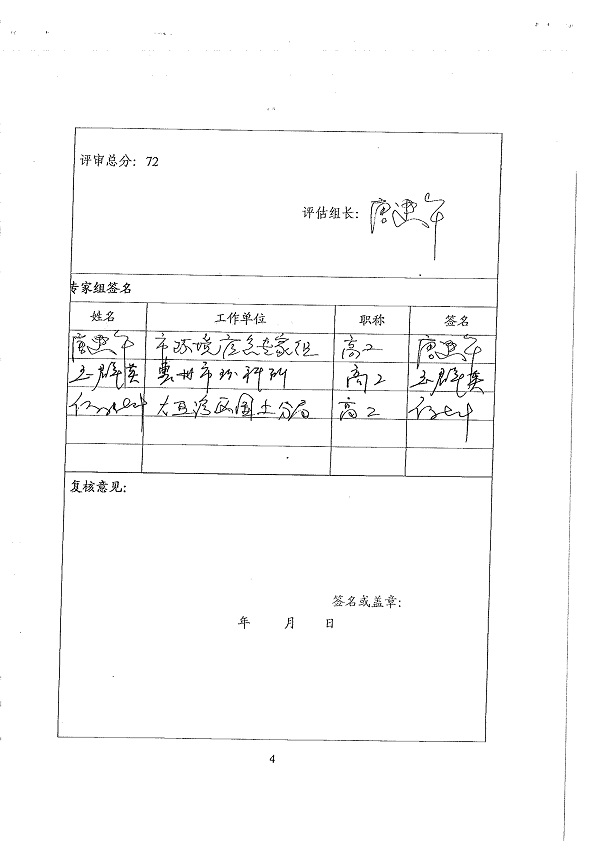 评审总分：72
评估组长：唐建军
专家组签名
姓名 工作单位 职称 签名
市环境应急专家组 高工
惠州市环科所 高工
大亚湾区国土分局 高工
复核意见：
签名或盖章：
年 月 日
4